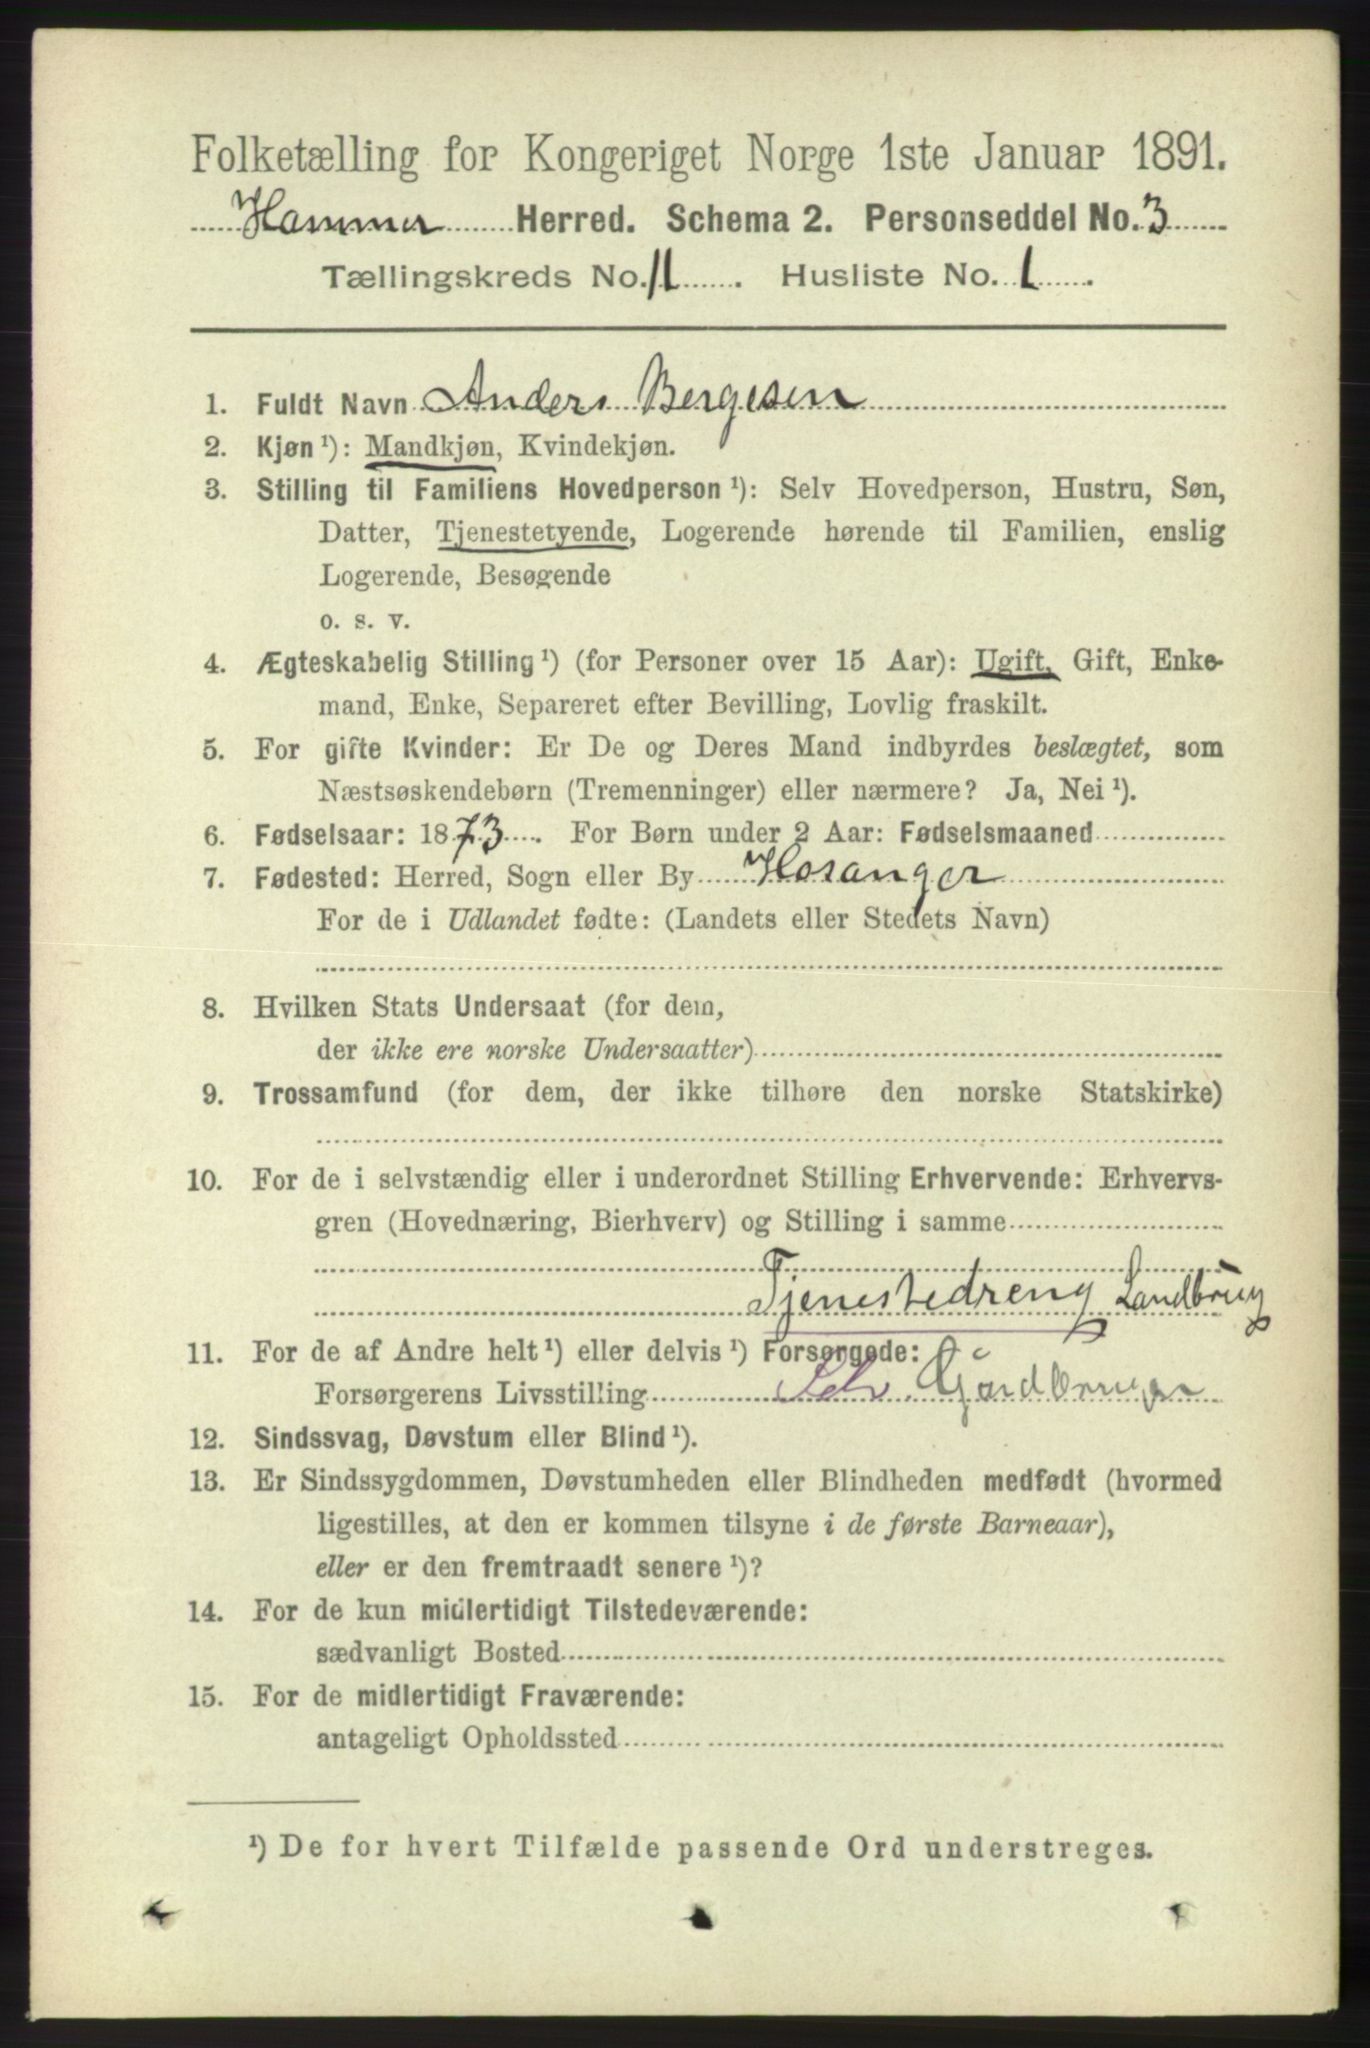 Folketælling for Kongeriget Norge 1ste Januar 1891.
Hammer Herred. Schema 2. Personseddel No. 3
Tællingskreds No. 11. Husliste No. 1.
1. Fuldt Navn Anders Bergesen
2. Kjøn ¹): Mandkjøn, Kvindekjøn.
3. Stilling til Familiens Hovedperson ¹): Selv Hovedperson, Hustru, Søn,
Datter, Tjenestetyende, Logerende hørende til Familien, enslig
Logerende, Besøgende
o. s. v.
4. Ægteskabelig Stilling ¹) (for Personer over 15 Aar): Ugift, Gift, Enke-
mand, Enke, Separeret efter Bevilling, Lovlig fraskilt.
5. For gifte Kvinder: Er De og Deres Mand indbyrdes beslægtet, som
Næstsøskendebørn (Tremenninger) eller nærmere? Ja, Nei ¹).
6. Fødselsaar: 1873. For Børn under 2 Aar: Fødselsmaaned
7. Fødested: Herred, Sogn eller By Hosanger
For de i Udlandet fødte: (Landets eller Stedets Navn)
8. Hvilken Stats Undersaat (for dem,
der ikke ere norske Undersaatter)
9. Trossamfund (for dem, der ikke tilhøre den norske Statskirke)
10. For de i selvstændig eller i underordnet Stilling Erhvervende: Erhvervs-
gren (Hovednæring, Bierhverv) og Stilling i samme
Tjenestedreng Landbrug
11. For de af Andre helt ¹) eller delvis ¹) Forsørgede:
Forsørgerens Livsstilling Selv. Gårdbruger
12. Sindssvag, Døvstum eller Blind ¹).
13. Er Sindssygdommen, Døvstumheden eller Blindheden medfødt (hvormed
ligestilles, at den er kommen tilsyne i de første Barneaar),
eller er den fremtraadt senere ¹)?
14. For de kun midlertidigt Tilstedeværende:
sædvanligt Bosted
15. For de midlertidigt Fraværende:
antageligt Opholdssted
¹) De for hvert Tilfælde passende Ord understreges.